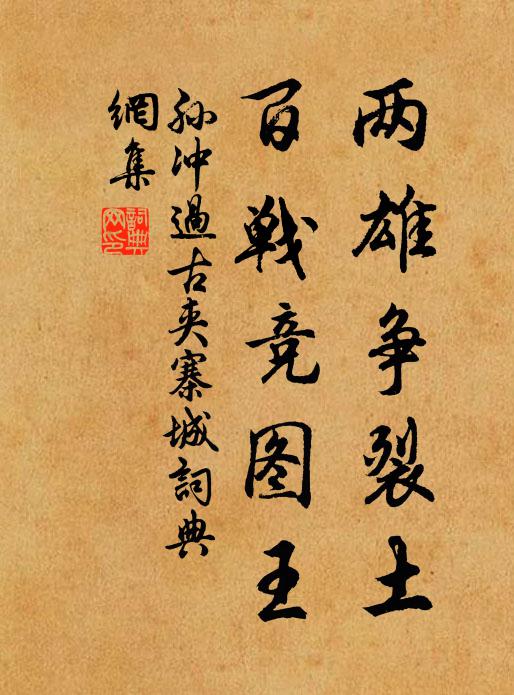 两雄争裂土
百戦竞图王
孙冲過古夹寨城詞典
網集
詞典
网印